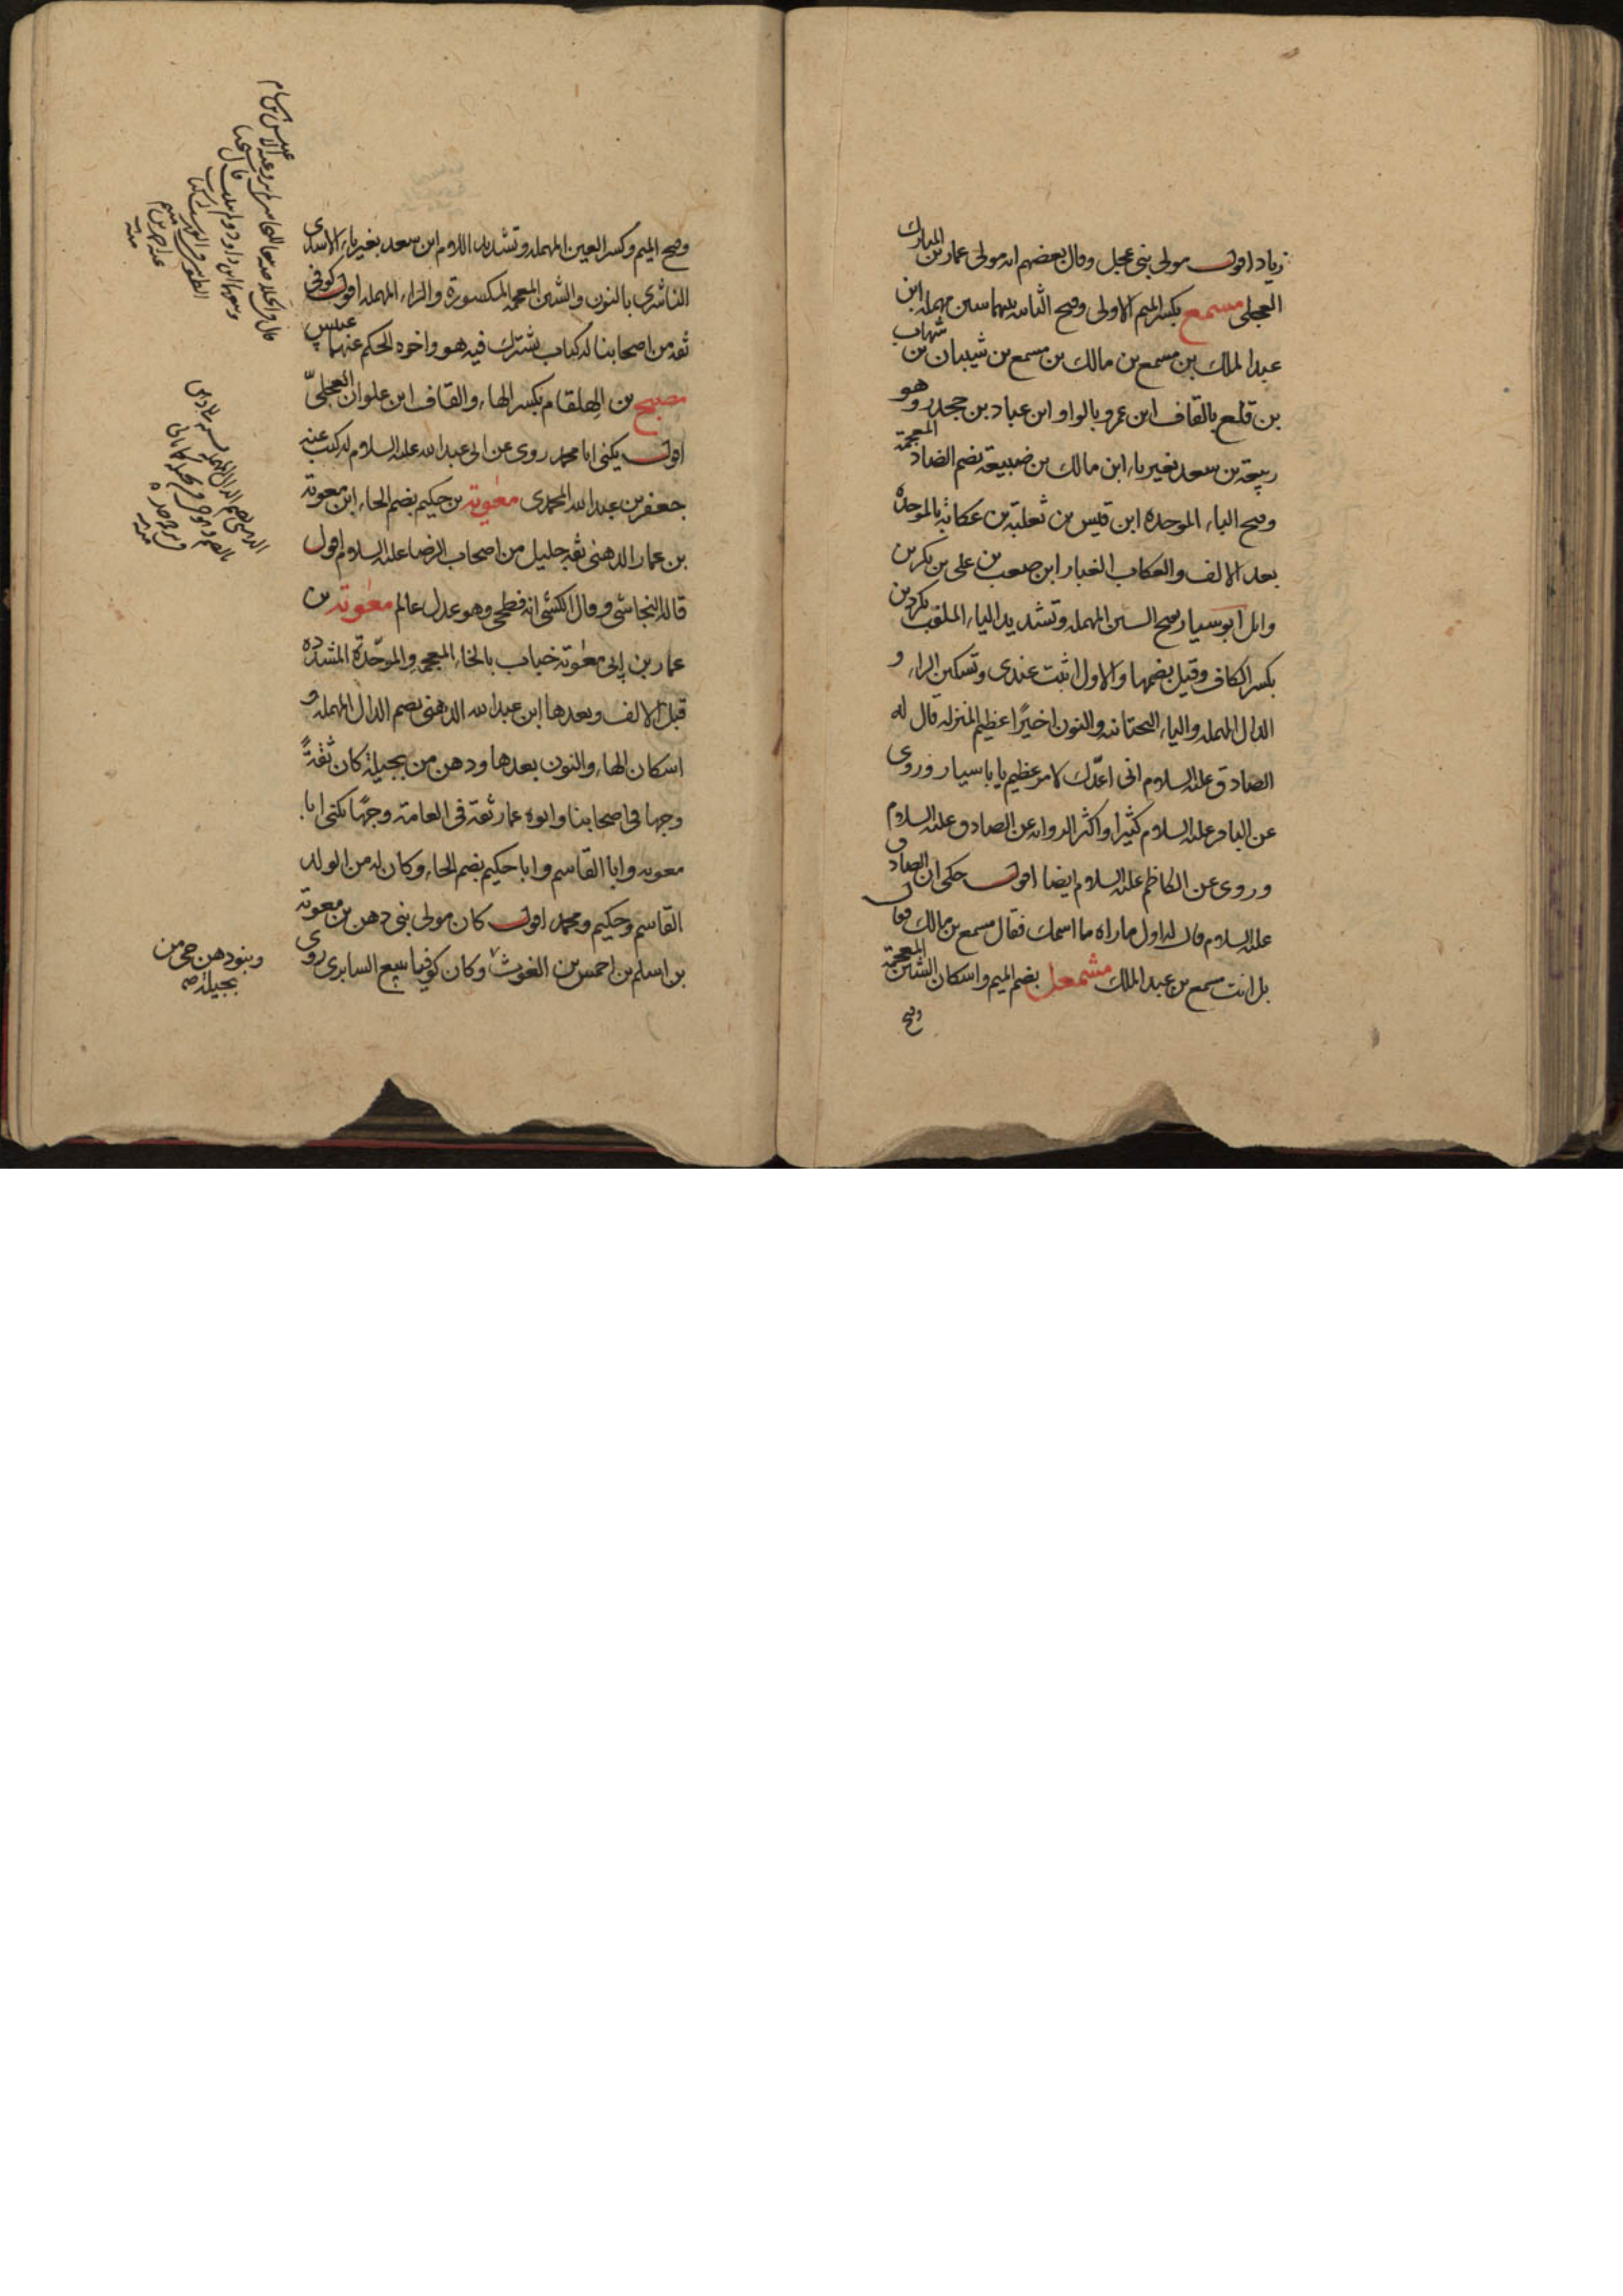 زياد اقول مولى بنى عجل وقال بعضهم انه مولى عمار بن المبارك
العجلى مسمع بكسر الميم الاولى وفتح الثانيه بينهما سين مهمله ابن
عبد الملك بن مسمع بن مالك بن مسمع بن شيبان بن شهاب
بن قلع بالقاف ابن عمرو بالواو ابن عباد بن جحدر وهو
ربيعة بن سعد بغير ياء ابن مالك بن ضبيعة بضم الضاد المعجمة
وفتح الباء الموحده ابن قيس بن ثعلبة بن عكابة بالموحدة
بعد الالف والعكاب الغبار ابن صعب بن على بن بكر بن
وائل ابو سيار بفتح السين المهمله وتشديد الياء الملقب كردين
بكسر الكاف وقيل بضمها والاول اثبت عندى وتسكين الراء و
الدال المهمله والياء التحتانيه والنون اخيرًا عظيم المنزله قال له
الصادق عليه السلام انى اعدّك لامر عظيم يا با سيار وروى
عن الباقر عليه السلام كثيرا واكثر الروايه عن الصادق عليه السلام
وروى عن الكاظم عليه السلام ايضا اقول حكى ان الصادق
عليه السلام قال له اول ما راه ما اسمك فقال مسمع بن مالك فقال
بل انت مسمع بن عبد الملك مشمعل بضم الميم واسكان الشين المعجمة
وفتح
وفتح الميم وكسر العين المهمله وتشديد اللام ابن سعد بغير ياء الاسدى
الناشرى بالنون والشين المعجمه المكسورة والراء المهمله اقول كوفى
ثقه من اصحابنا له كتاب يشترك فيه هو واخوه الحكم عنهما عبيس
مصبح بن الهلقام بكسر الهاء والقاف ابن علوان العجلىّ
اقول يكنى ابا محمد روى عن ابى عبد الله عليه السلام له كتب عنه
جعفر بن عبد الله المحمدى معوية بن حكيم بضم الحاء ابن معوية
بن عمار الدهنى ثقة جليل من اصحاب الرضا عليه السلام اقول
قاله النجاشى وقال الكشى انه فطحى وهو عدل عالم معوية بن
عمار بن ابى معوية خباب بالخاء المعجمه والموحّدة المشدده
قبل الالف وبعدها ابن عبد الله الدهنى بضم الدال المهمله و
اسكان الهاء والنون بعدها ودهن من بجيلة كان ثقةً
وجها فى اصحابنا وابوه عمار ثقة فى العامة وجهًا يكنى ابا
معويه وابا القاسم وابا حكيم بضم الحاء وكان له من الولد
القاسم وحكيم ومحمد اقول كان مولى بنى دهن بن معوية
بن اسلم بن احمس بن الغوث وكان كوفيا يبيع السابرى روى
وبنو دهن حى من
بجيلة صح